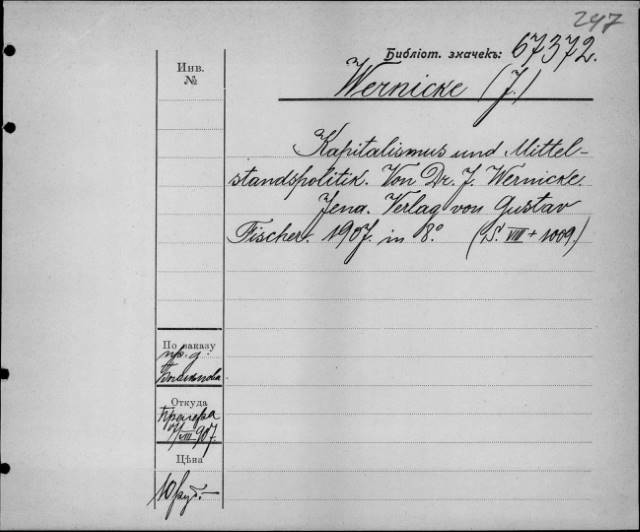 247
Библіот. значекъ: 67372.
Инв.
№
Wernicke (J.)
Kapitalismus und Mittel-
standspolitik. Von Dr. J. Wernicke.
Jena. Verlag von Gustav
Fischer. 1907. in 8.° (S. VIII + 1009.)
По заказу
пр. д.
Откуда
VIII 907.
Цѣна
10 руб. —